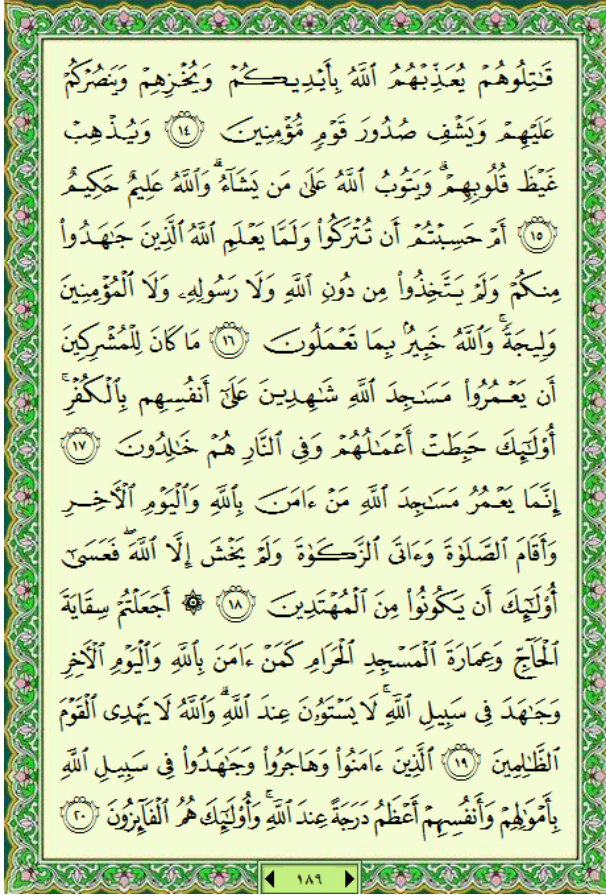 قَـٰتِلُوهُمْ يُعَذِّبْهُمُ ٱللَّهُ بِأَيْدِيكُمْ وَيُخْزِهِمْ وَيَنصُرْكُمْ
عَلَيْهِمْ وَيَشْفِ صُدُورَ قَوْمٍ مُّؤْمِنِينَ ﴿١٤﴾ وَيُذْهِبْ
غَيْظَ قُلُوبِهِمْ ۗ وَيَتُوبُ ٱللَّهُ عَلَىٰ مَن يَشَآءُ ۗ وَٱللَّهُ عَلِيمٌ حَكِيمٌ
﴿١٥﴾ أَمْ حَسِبْتُمْ أَن تُتْرَكُوا۟ وَلَمَّا يَعْلَمِ ٱللَّهُ ٱلَّذِينَ جَـٰهَدُوا۟
مِنكُمْ وَلَمْ يَتَّخِذُوا۟ مِن دُونِ ٱللَّهِ وَلَا رَسُولِهِۦ وَلَا ٱلْمُؤْمِنِينَ
وَلِيجَةً ۚ وَٱللَّهُ خَبِيرٌۢ بِمَا تَعْمَلُونَ ﴿١٦﴾ مَا كَانَ لِلْمُشْرِكِينَ
أَن يَعْمُرُوا۟ مَسَـٰجِدَ ٱللَّهِ شَـٰهِدِينَ عَلَىٰٓ أَنفُسِهِم بِٱلْكُفْرِ ۚ
أُو۟لَـٰٓئِكَ حَبِطَتْ أَعْمَـٰلُهُمْ وَفِى ٱلنَّارِ هُمْ خَـٰلِدُونَ ﴿١٧﴾
إِنَّمَا يَعْمُرُ مَسَـٰجِدَ ٱللَّهِ مَنْ ءَامَنَ بِٱللَّهِ وَٱلْيَوْمِ ٱلْـَٔاخِرِ
وَأَقَامَ ٱلصَّلَوٰةَ وَءَاتَى ٱلزَّكَوٰةَ وَلَمْ يَخْشَ إِلَّا ٱللَّهَ ۖ فَعَسَىٰٓ
أُو۟لَـٰٓئِكَ أَن يَكُونُوا۟ مِنَ ٱلْمُهْتَدِينَ ﴿١٨﴾ ۞ أَجَعَلْتُمْ سِقَايَةَ
ٱلْحَآجِّ وَعِمَارَةَ ٱلْمَسْجِدِ ٱلْحَرَامِ كَمَنْ ءَامَنَ بِٱللَّهِ وَٱلْيَوْمِ ٱلْـَٔاخِرِ
وَجَـٰهَدَ فِى سَبِيلِ ٱللَّهِ ۚ لَا يَسْتَوُۥنَ عِندَ ٱللَّهِ ۗ وَٱللَّهُ لَا يَهْدِى ٱلْقَوْمَ
ٱلظَّـٰلِمِينَ ﴿١٩﴾ ٱلَّذِينَ ءَامَنُوا۟ وَهَاجَرُوا۟ وَجَـٰهَدُوا۟ فِى سَبِيلِ ٱللَّهِ
بِأَمْوَٰلِهِمْ وَأَنفُسِهِمْ أَعْظَمُ دَرَجَةً عِندَ ٱللَّهِ ۚ وَأُو۟لَـٰٓئِكَ هُمُ ٱلْفَآئِزُونَ ﴿٢٠﴾
١٨٩